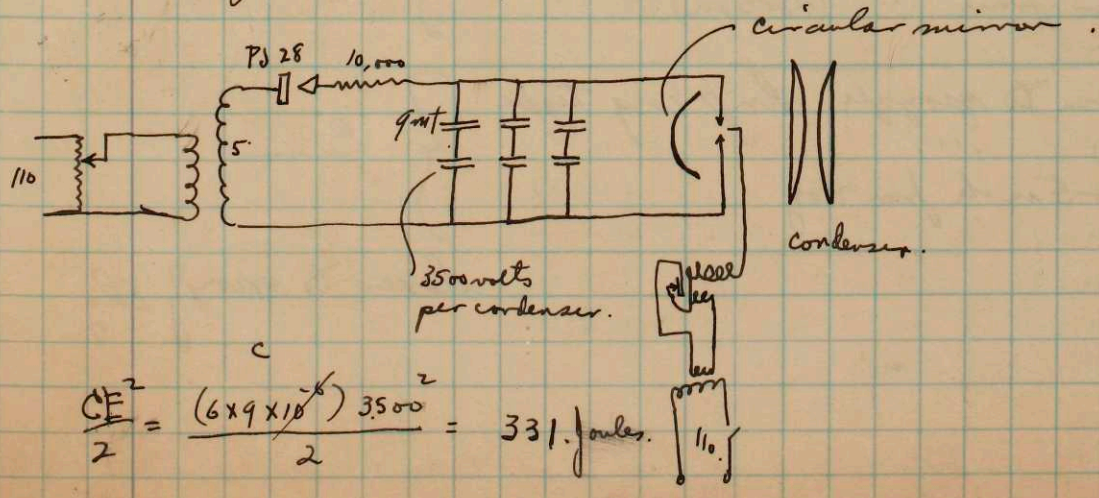 circular mirror.
PJ 28
10,000
9 mf
5
110
condenser.
3500 volts
per condenser.
C
CE²/2 = (6 x 9 x 10⁻⁶) 3500²/2 = 331. Joules.
110.